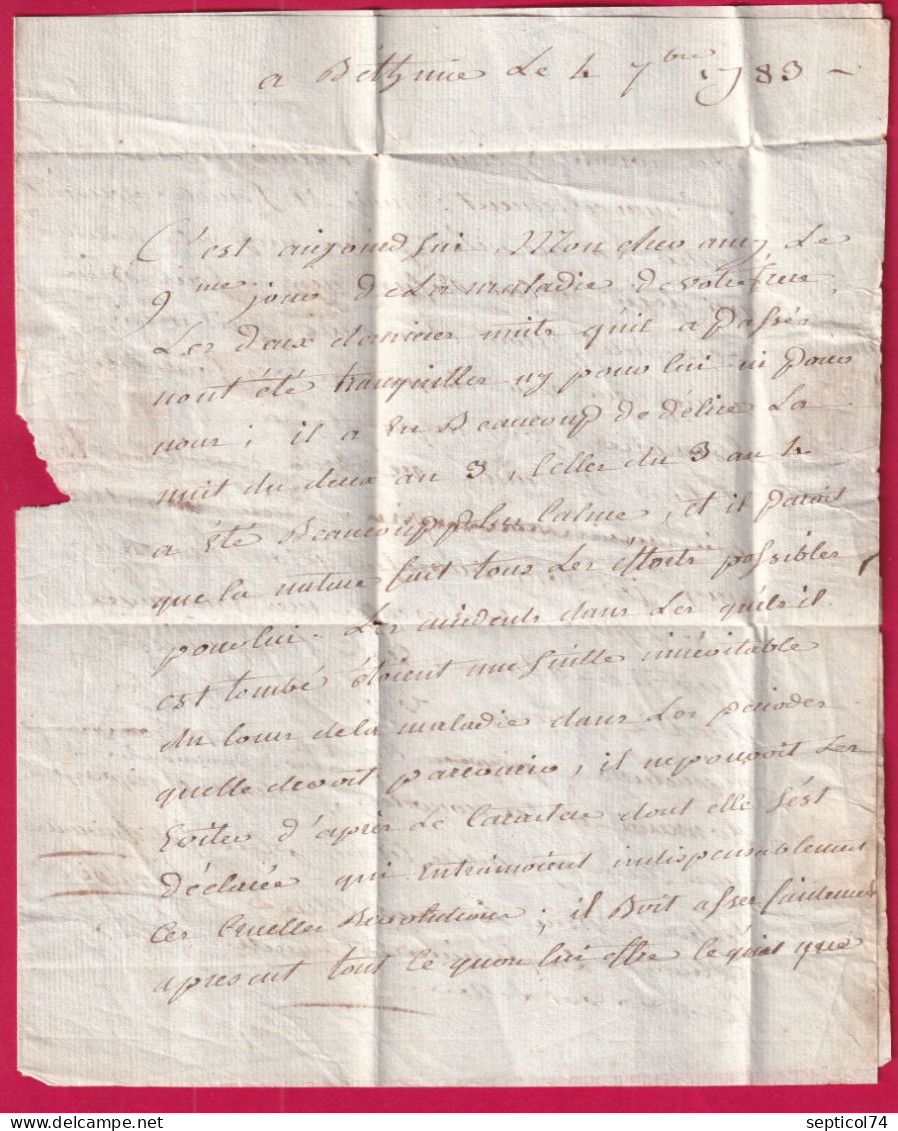 a Béthune Le 4 7bre 1783 -
C'est aujourd'hui Mon cher amy Le
9me jour de La maladie de votre frere,
Les deux dernieres nuits qu'il a passés
n'ont été tranquilles ny pour lui ni pour
nous; il a eu Beaucoup de délire La
nuit du deux au 3, Celles du 3 au 4
a été Beaucoup plus Calme, et il paroit
que la nature fait tous Les éfforts possibles
pour lui. Les accidents dans Les quels il
est tombé étoient une suitte innévitable
du Cours de la maladie dans Les périodes
quelle devoit parcourir, il ne pouvoit Les
Eviter d'après Le Caractere dont elle s'est
déclaiée qui Entrainoient indispensablement
Ces Cruelles Révolutions; il Boit asses facilement
apresent tout ce quon lui offre ce quiet que
septicol74
DELCAMPE.NET